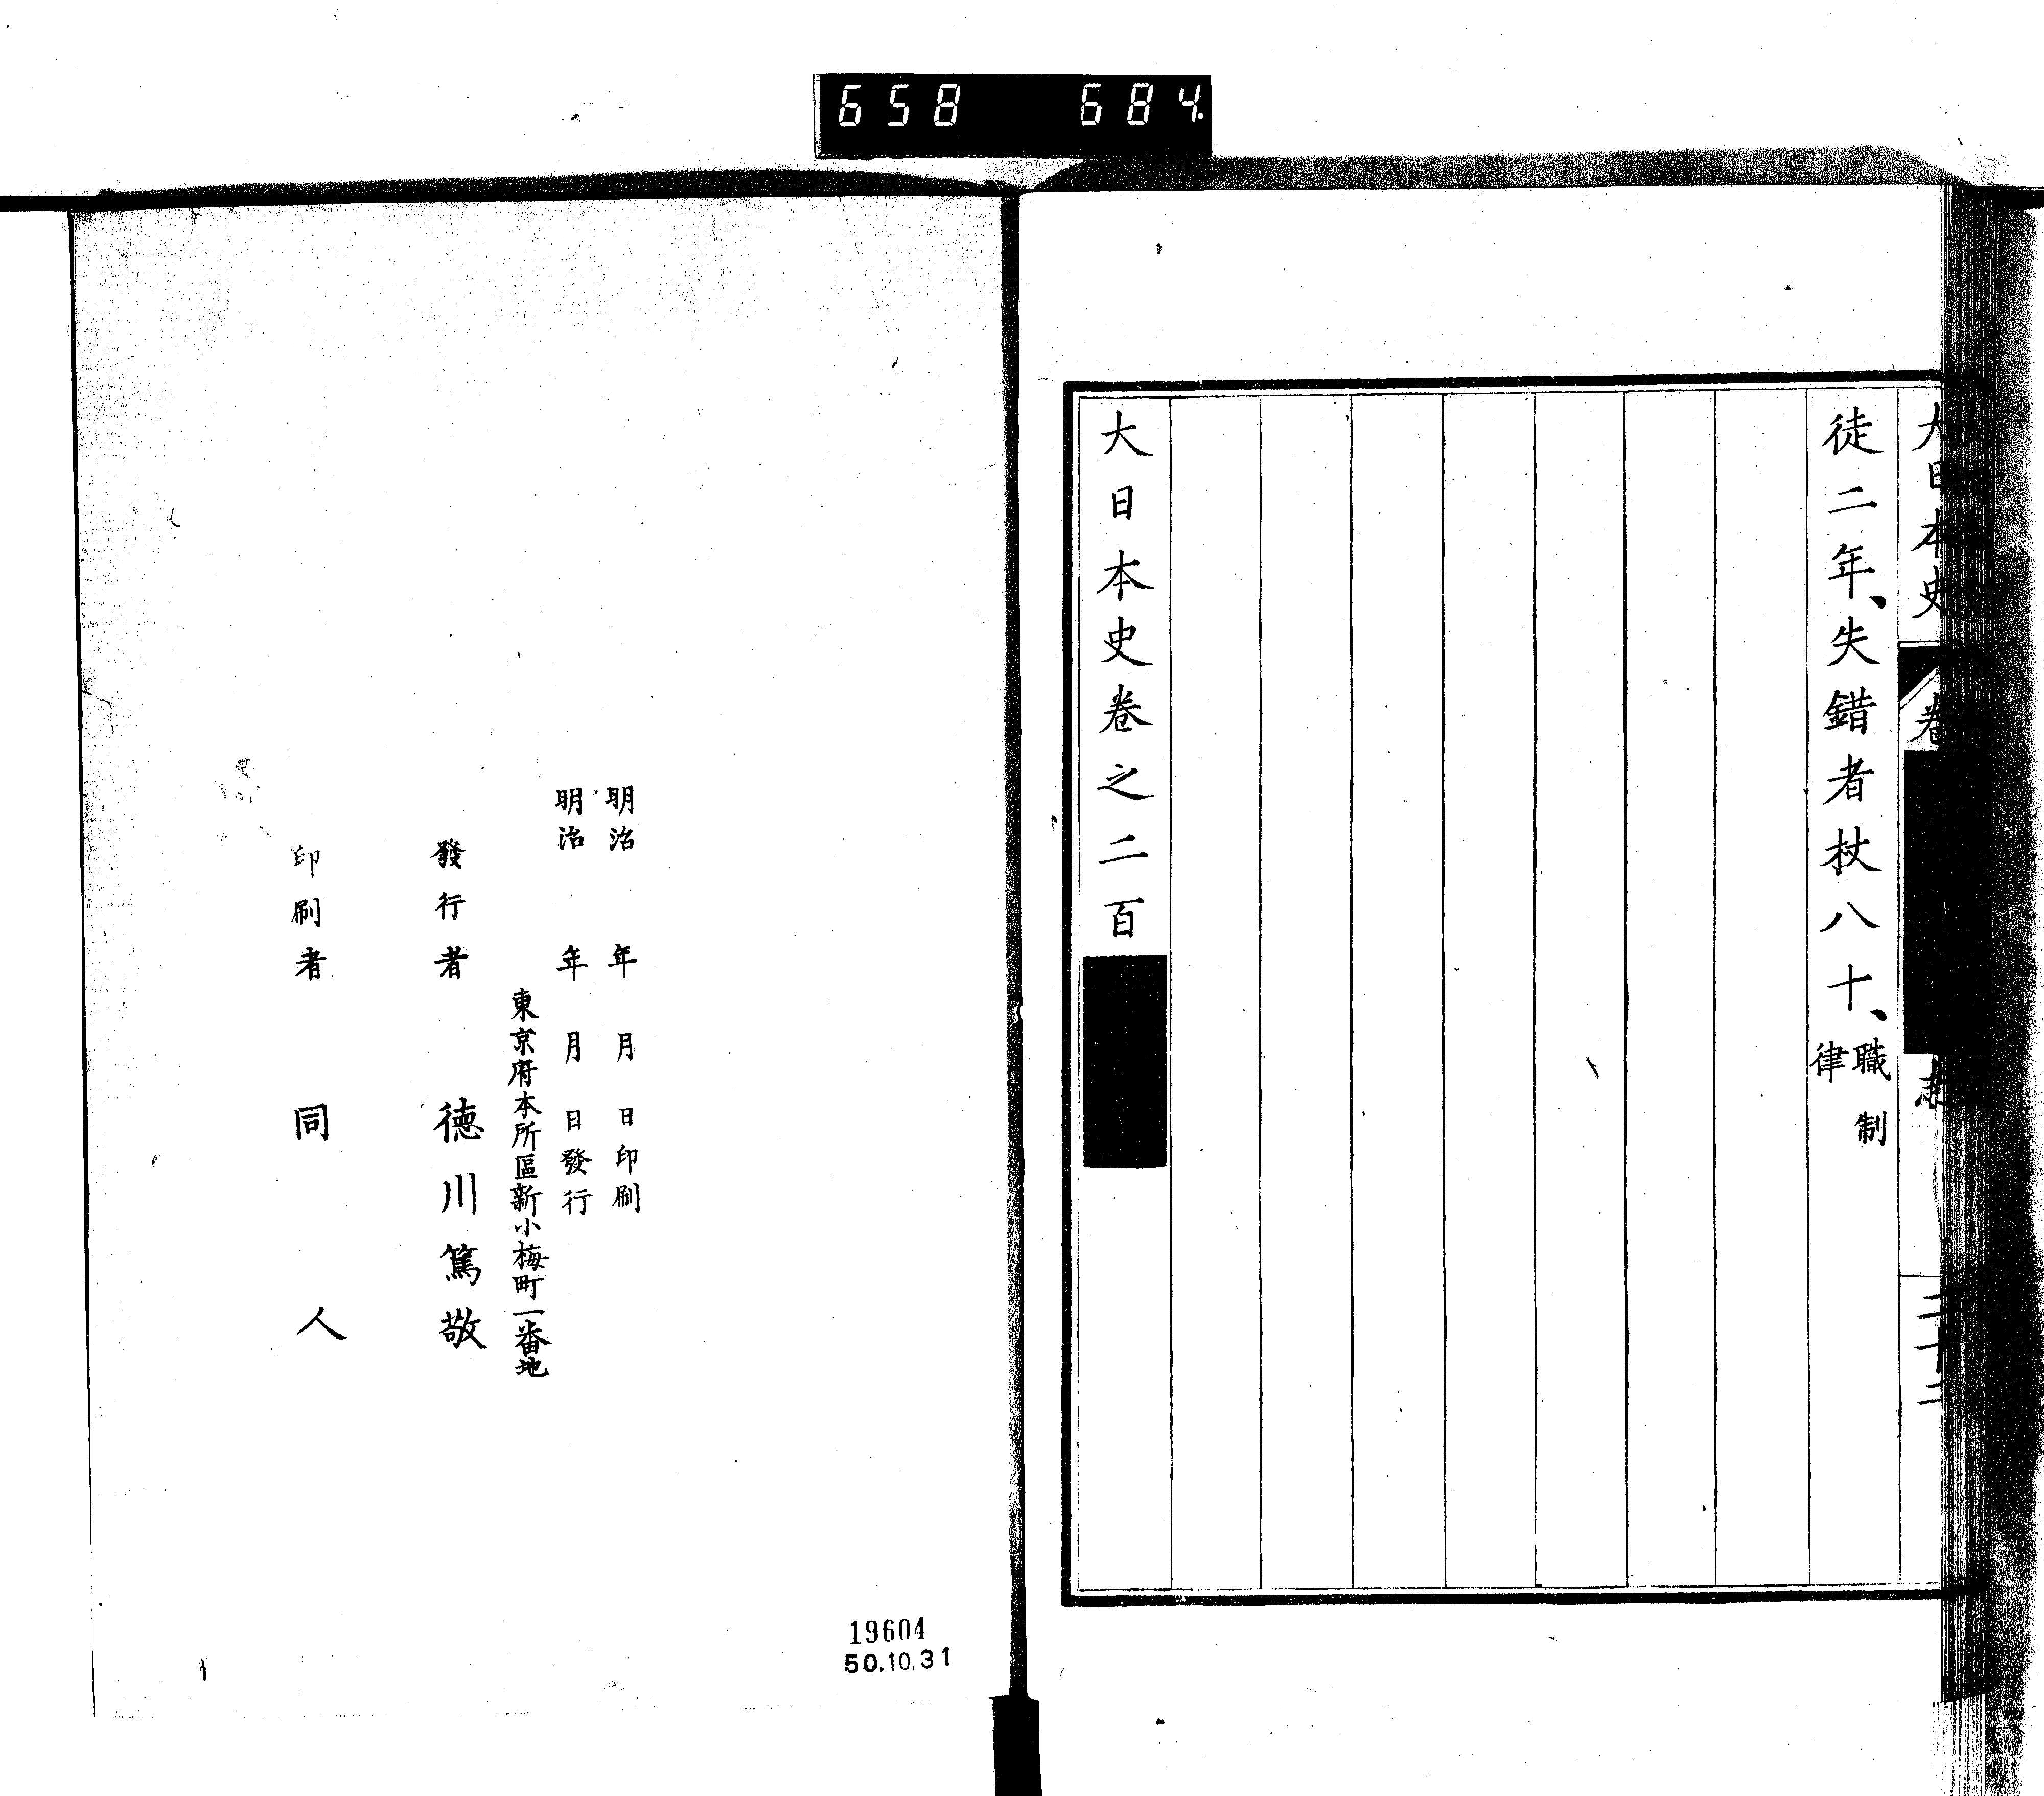 658 684
大日本史 卷 志 二十二
徒二年、失錯者杖八十、職制律
大日本史卷之二百
明治 年 月 日印刷
明治 年 月 日發行
東京府本所區新小梅町一番地
發行者 德川篤敬
印刷者 同人
19604
50.10.31